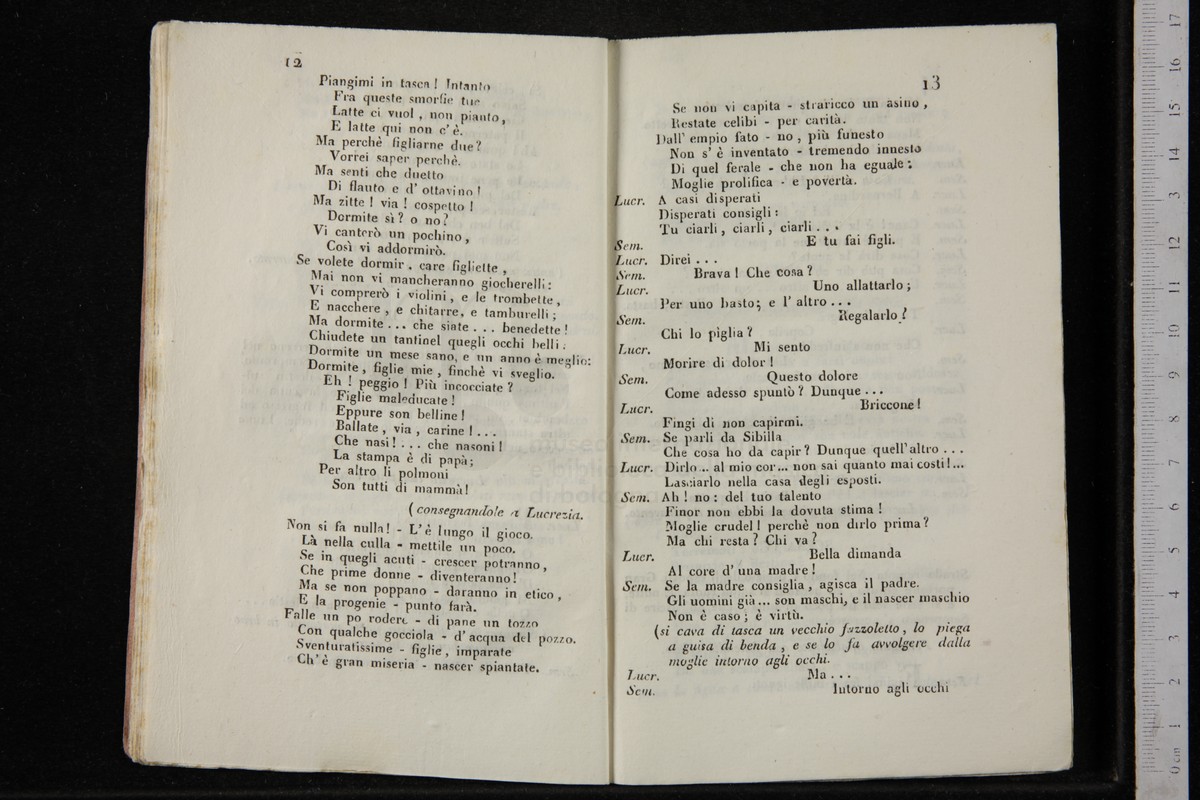 12
Piangimi in tasca! Intanto
Fra queste smorfie tue
Latte ci vuol, non pianto,
E latte qui non c'è.
Ma perchè figliarne due?
Vorrei saper perchè.
Ma senti che duetto
Di flauto e d'ottavino!
Ma zitte! via! cospetto!
Dormite sì? o no?
Vi canterò un pochino,
Così vi addormirò.
Se volete dormir, care figliette,
Mai non vi mancheranno giocherelli:
Vi comprerò i violini, e le trombette,
E nacchere, e chitarre, e tamburelli;
Ma dormite... che siate... benedette!
Chiudete un tantinel quegli occhi belli.
Dormite un mese sano, e un anno è meglio:
Dormite, figlie mie, finchè vi sveglio.
Eh! peggio! Più incocciate?
Figlie maleducate!
Eppure son belline!
Ballate, via, carine!...
Che nasi!... che nasoni!
La stampa è di papà;
Per altro li polmoni
Son tutti di mammà!
(consegnandole a Lucrezia.
Non si fa nulla! - L'è lungo il gioco.
Là nella culla - mettile un poco.
Se in quegli acuti - crescer potranno,
Che prime donne - diventeranno!
Ma se non poppano - daranno in etico,
E la progenie - punto farà.
Falle un po rodere - di pane un tozzo
Con qualche gocciola - d'acqua del pozzo.
Sventuratissime - figlie, imparate
Ch'è gran miseria - nascer spiantate.
13
Se non vi capita - straricco un asino,
Restate celibi - per carità.
Dall'empio fato - no, più funesto
Non s'è inventato - tremendo innesto
Di quel ferale - che non ha eguale:
Moglie prolifica - e povertà.
Lucr. A casi disperati
Disperati consigli:
Tu ciarli, ciarli, ciarli...
Sem. E tu fai figli.
Lucr. Direi...
Sem. Brava! Che cosa?
Lucr. Uno allattarlo;
Per uno basto; e l'altro...
Sem. Regalarlo?
Chi lo piglia?
Lucr. Mi sento
Morire di dolor!
Sem. Questo dolore
Come adesso spuntò? Dunque...
Lucr. Briccone!
Fingi di non capirmi.
Sem. Se parli da Sibilla
Che cosa ho da capir? Dunque quell'altro...
Lucr. Dirlo... al mio cor... non sai quanto mai costi!...
Lasciarlo nella casa degli esposti.
Sem. Ah! no: del tuo talento
Finor non ebbi la dovuta stima!
Moglie crudel! perchè non dirlo prima?
Ma chi resta? Chi va?
Lucr. Bella dimanda
Al core d'una madre!
Sem. Se la madre consiglia, agisca il padre.
Gli uomini già... son maschi, e il nascer maschio
Non è caso; è virtù.
(si cava di tasca un vecchio fazzoletto, lo piega
a guisa di benda, e se lo fa avvolgere dalla
moglie intorno agli occhi.
Lucr. Ma...
Sem. Intorno agli occhi